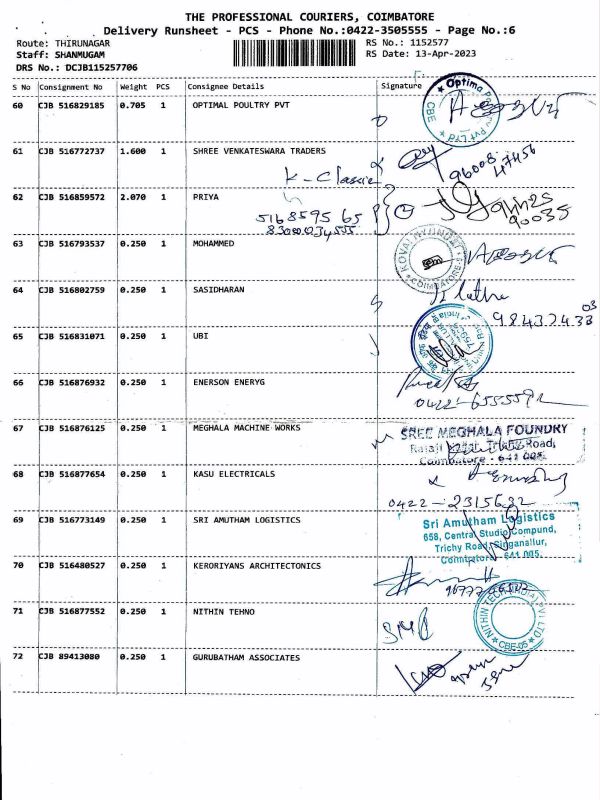 THE PROFESSIONAL COURIERS, COIMBATORE
Delivery Runsheet - PCS - Phone No.:0422-3505555 - Page No.:6
Route: THIRUNAGAR RS No.: 1152577
Staff: SHANMUGAM RS Date: 13-Apr-2023
DRS No.: DCJB115257706
S No Consignment No Weight PCS Consignee Details Signature
60 CJB 516829185 0.705 1 OPTIMAL POULTRY PVT
Optima
CBE
Pvt Ltd
61 CJB 516772737 1.600 1 SHREE VENKATESWARA TRADERS
96008
47456
K-Classic
62 CJB 516859572 2.070 1 PRIYA
5168595 65
90035
63 CJB 516793537 0.250 1 MOHAMMED
COIMBATORE
64 CJB 516802759 0.250 1 SASIDHARAN
Latha
65 CJB 516831071 0.250 1 UBI
66 CJB 516876932 0.250 1 ENERSON ENERYG
67 CJB 516876125 0.250 1 MEGHALA MACHINE WORKS
SREE MEGHALA FOUNDRY
Rajaji Nagar, Trichy Road,
Coimbatore - 641 005.
68 CJB 516877654 0.250 1 KASU ELECTRICALS
0422-2315632
69 CJB 516773149 0.250 1 SRI AMUTHAM LOGISTICS
Sri Amutham Logistics
658, Central Studio Compund,
Trichy Road, Singanallur,
Coimbatore - 641 005.
70 CJB 516480527 0.250 1 KERORIYANS ARCHITECTONICS
71 CJB 516877552 0.250 1 NITHIN TEHNO
NITHIN
PVT LTD
CBE-05
72 CJB 89413080 0.250 1 GURUBATHAM ASSOCIATES